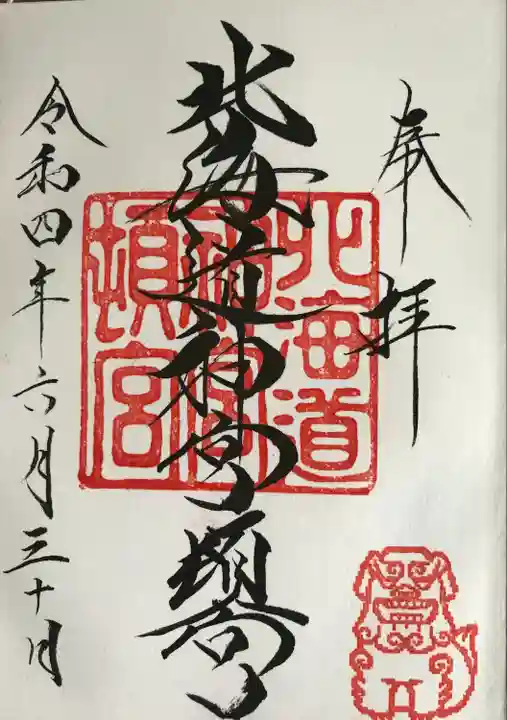 奉拝
北海道神宮頓宮
北海道
神宮
頓宮
令和四年六月三十日